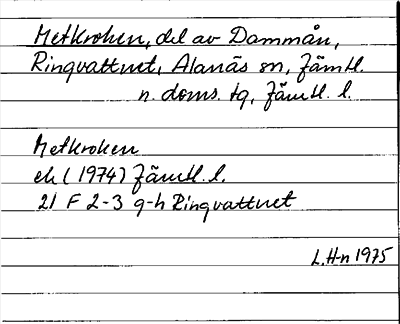 Metkroken, del av Dammån,
Ringvattnet, Alanäs sn, Jämtl.
n. doms. tg, Jämtl. l.
Metkroken
ek (1974) Jämtl. l.
21 F 2-3 g-h Ringvattnet
L. H-n 1975